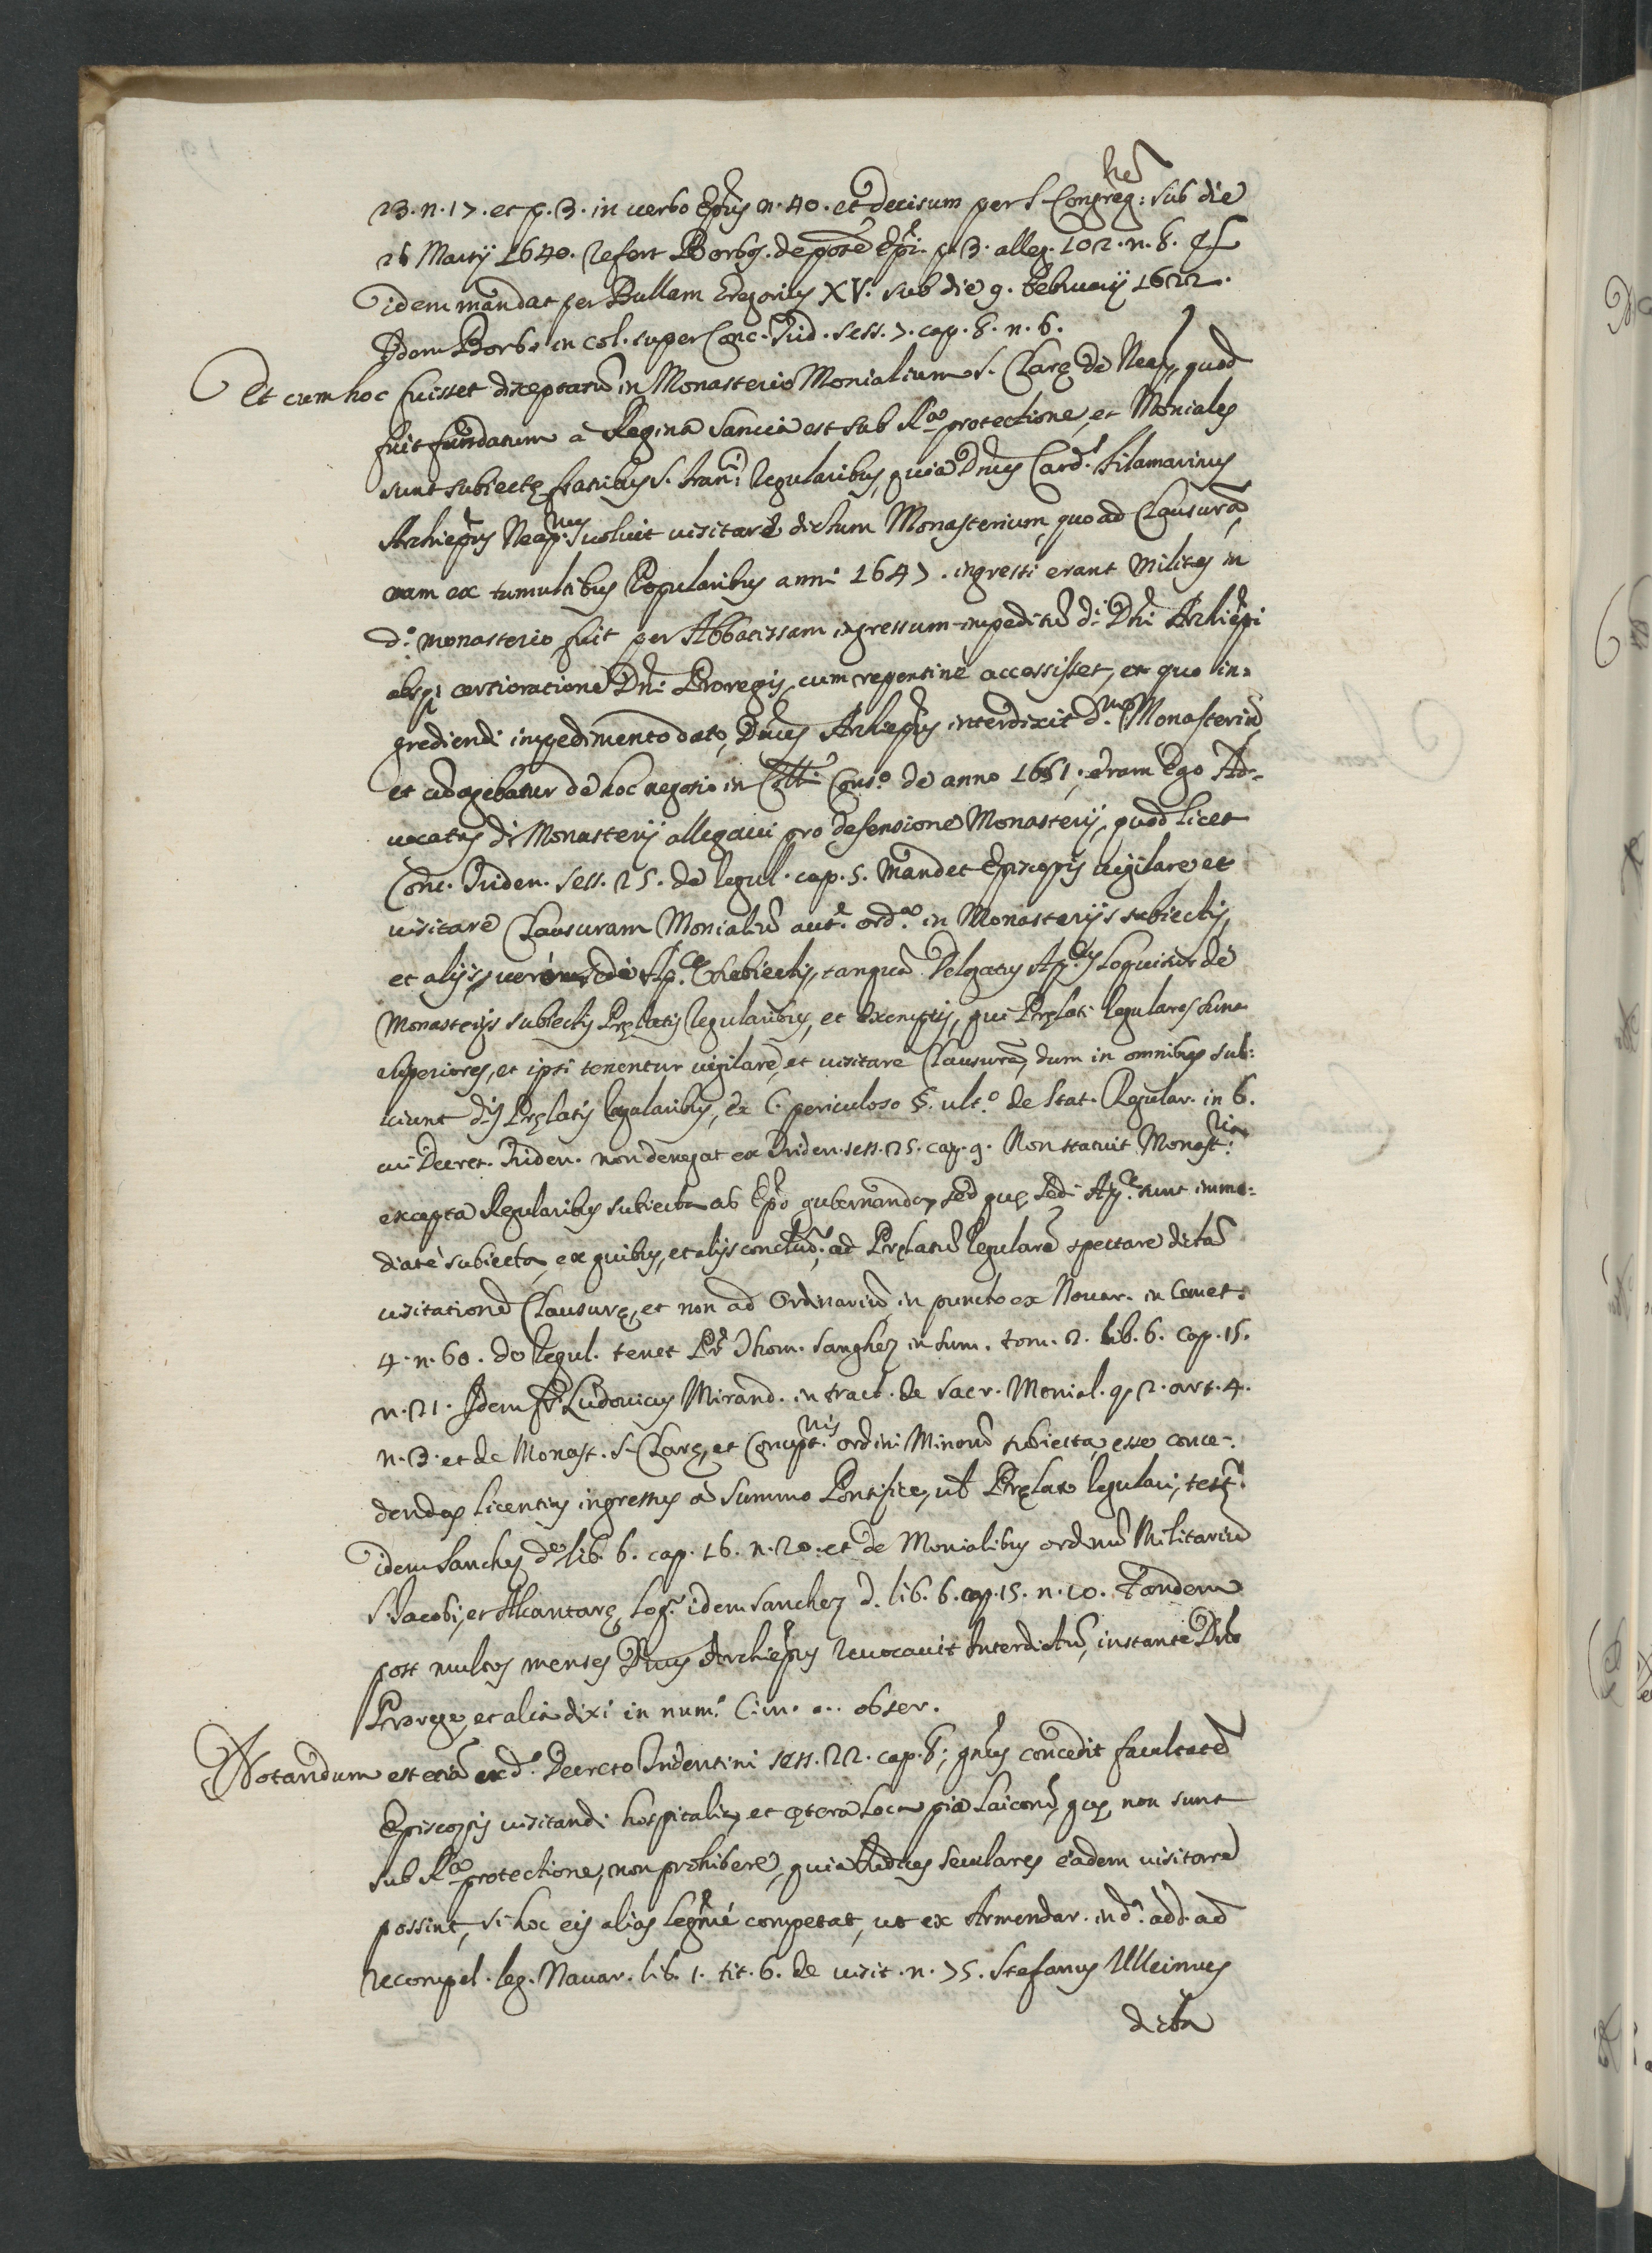 23. n. 17. et p. 3. in uerbo Ep̃us n. 40. et decisum per S. Congreg:nem sub die
26 Martij 1640. refert Barbos. de potẽ Ep̃i. p. 3. alleg. 102. n. 8. et
idem mandat per Bullam Gregorius XV. sub die 9. Februarij 1622.
Idem Barbs. in col. super Conc. Trid. sess. 7. cap. 8. n. 6.
Et cum hoc fuisset disceptatũ in Monasterio Monialium S. Clarę de Neap., quod
fuit fundatum à Regina Sancia est sub Ra. protectione, et Moniales
sunt subiectę fratribus S. Franci. regularibus, quia Dñus Card.l Filamarinus
Archiep̃us Neap.nus uoluit uisitare dictum Monasterium, quo ad Clausurã,
nam ex tumultibus Popularibus anni 1647. ingressi erant Milites in
d.o monasterio fuit per Abbatissam ingressum impeditũ d.i Dñi Archiep̃i
absq; certioratione Dñi Proregis, cum repentinè accessisset, ex quo in=
grediendi impedimento dato, Dñus Archiep̃us interdixit d.m Monasteriũ
et cũ agebatur de hoc negotio in Coll.i Cons.o de anno 1651. eram Ego Ad=
uocatus d.i Monasterij allegaui pro defensione Monasterij, quod licet
Conc. Triden. sess. 25. de regul. cap. 5. mandet Episcopis uigilare et
uisitare Clausuram Monialiũ aut.e ord.a in Monasterijs subiectis,
et alijs, uerò Sedi Ap.cæ subiectis, tanquã Delegatus Ap.cus loquitur de
Monasterijs subiectis Pręlatis regularibus, et exemptis, qui Pręlati regulares sunt
superiores, et ipsi tenentur uigilare, et uisitare Clausurã, dum in omnibus sub=
iciunt d.is Pręlatis regularibus, ex C. periculoso §. ult.o de Stat. Regular. in 6.
cui Decret. Triden. non derogat ex Triden. sess. 25. cap. 9. Non statuit Monast.ria
excepta Regularibus subiecta ab Ep̃o gubernanda, sed quę Sedi Ap.cę sunt imme=
diatè subiecta, ex quibus, et alijs conclud.r ad Pręlatũ regularẽ spectare dictã
uisitationẽ Clausurę, et non ad Ordinariũ, in puncto ex Nouar. in Comet.
4. n. 60. de regul. tenet Pr. Thom. Sanghez in sum. tom. 2. lib. 6. cap. 15.
n. 21. Idem fr. Ludouicus Mirand. in tract. de sacr. Monial. q. 2. art. 4.
n. 3. et de Monast. S. Clarę, et Concept.nis ordini Minorũ subiecta, esse conce=
dendas licentias ingressus à Summo Pontifice, uel Pręlato regulari, test.r
idem Sanchez d.o lib. 6. cap. 16. n. 20. et de Monialibus ordinũ Militariũ
S. Iacobi, et Alcantarę loq.r idem Sanchez d. lib. 6. cap. 15. n. 10. Tandem
post multos menses Dñus Archiep̃us reuocauit Interdictũ, instante Dño
Prorege, et alia dixi in num.o C. in. ... obser.
Notandum est etiã ex d.o Decreto Tridentini sess. 22. cap. 8; gñus concedit facultatẽ
Episcopis uisitandi hospitalia, et cętera loca pia laicorũ, quę non sunt
sub Ra. protectione, non prohibere, quia Iudices seculares eadem uisitare
possint, si hoc eis alias legñte competat, ut ex Armendar. in d.o add. ad
recompil. leg. Nauar. lib. 1. tit. 6. de uisit. n. 75. Stefanus
dicta